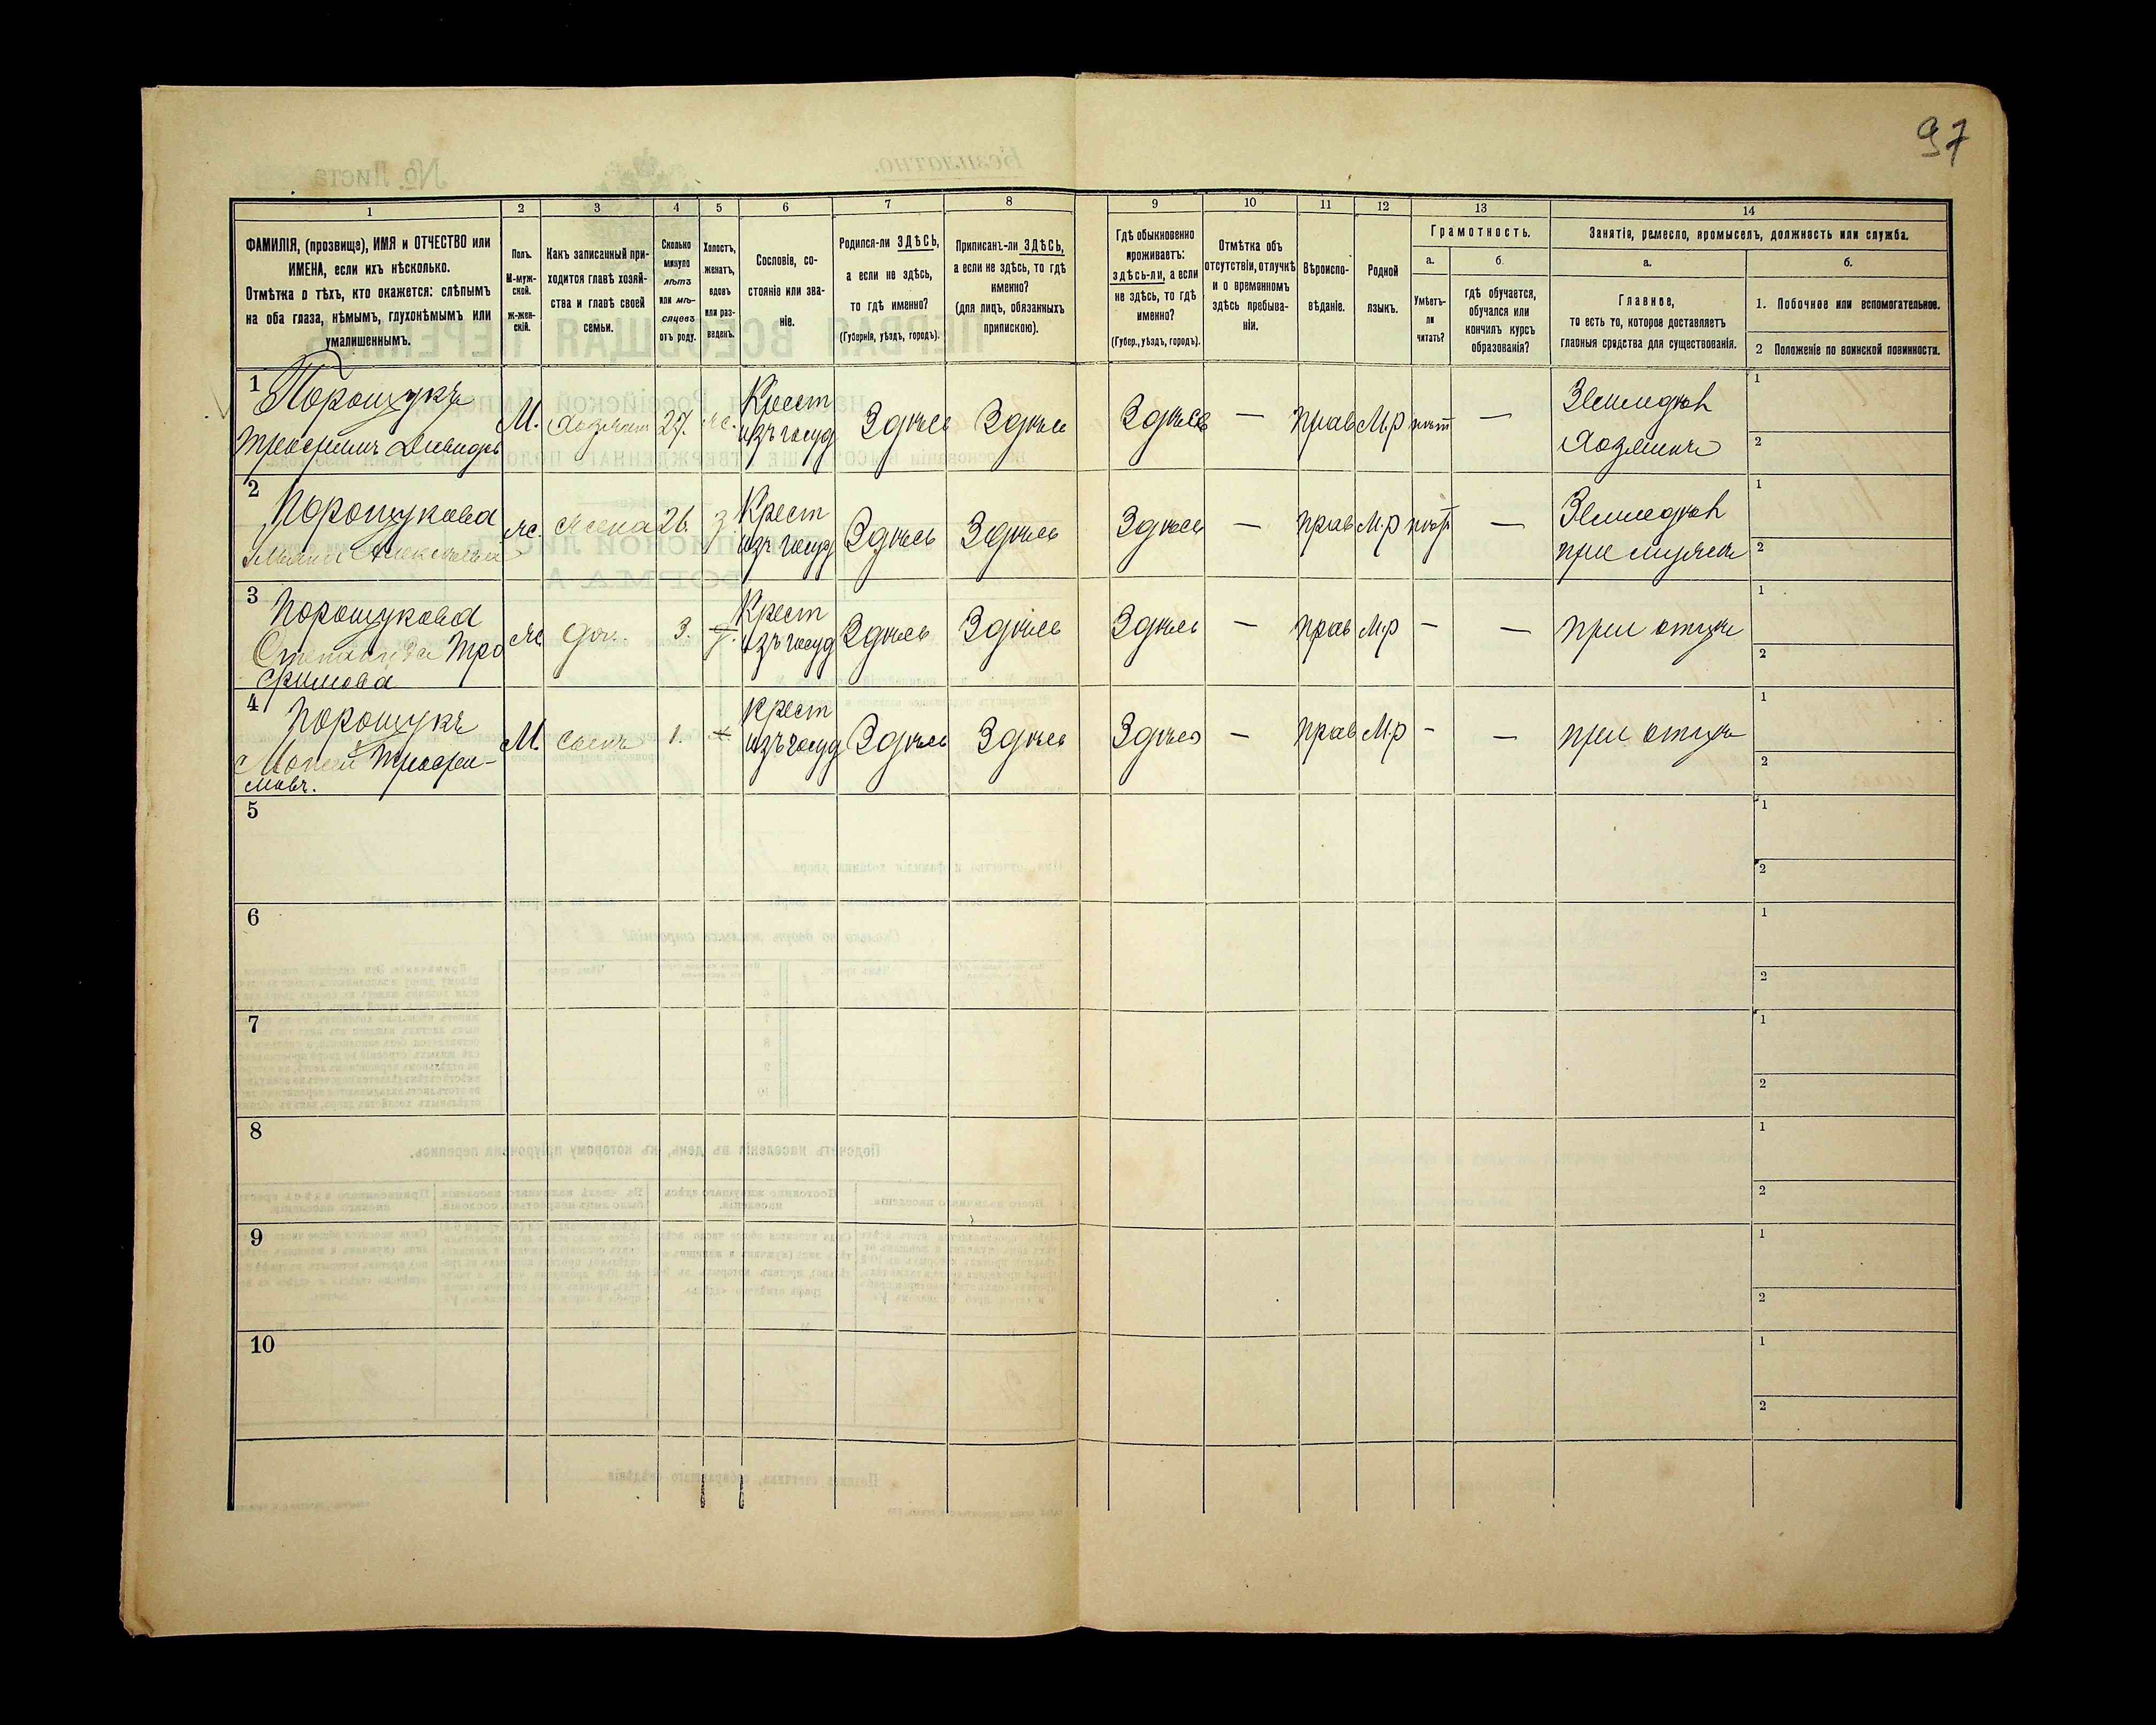 97
1 2 3 4 5 6 7 8 9 10 11 12 13 14
ФАМИЛІЯ, (прозвище), ИМЯ и ОТЧЕСТВО или
ИМЕНА, если ихъ нѣсколько.
Отмѣтка о тѣхъ, кто окажется: слѣпымъ
на оба глаза, нѣмымъ, глухонѣмымъ или
умалишеннымъ.
Полъ.
М-муж-
ской.
Ж-жен-
скій.
Какъ записанный при-
ходится главѣ хозяй-
ства и главѣ своей
семьи.
Сколько
минуло
лѣтъ
или мѣ-
сяцевъ
отъ роду.
Холостъ,
женатъ,
вдовъ
или раз-
веденъ.
Сословіе, со-
стояніе или зва-
ніе.
Родился-ли ЗДѢСЬ,
а если не здѣсь,
то гдѣ именно?
(Губернія, уѣздъ, городъ).
Приписанъ-ли ЗДѢСЬ,
а если не здѣсь, то гдѣ
именно?
(для лицъ, обязанныхъ
припискою).
Гдѣ обыкновенно
проживаетъ:
здѣсь-ли, а если
не здѣсь, то гдѣ
именно?
(Губер., уѣздъ, городъ).
Отмѣтка объ
отсутствіи, отлучкѣ
и о временномъ
здѣсь пребыва-
ніи.
Вѣроиспо-
вѣданіе.
Родной
языкъ.
Грамотность.
а.
Умѣетъ-
ли
читать?
б.
гдѣ обучается,
обучался или
кончилъ курсъ
образованія?
Занятіе, ремесло, промыселъ, должность или служба.
а.
Главное,
то есть то, которое доставляетъ
главныя средства для существованія.
б.
1. Побочное или вспомогательное.
2 Положеніе по воинской повинности.
1 Порощукъ
Трофимъ
М. Хозяинъ 27. ж.
Крест
изъ госуд
Здѣсь Здѣсь Здѣсь — прав М.р нѣт —
Земледѣл
Хозяинъ
1
2
2 Порощукова
Алексѣева
ж. жена 26. з.
Крест
изъ госуд
Здѣсь Здѣсь Здѣсь — прав М.р нѣт —
Земледѣл
при мужѣ
1
2
3 Порощукова
Степанида Тро
фимова
ж доч. 3. д.
Крест
изъ госуд
Здѣсь Здѣсь Здѣсь — прав М.р - — при отцѣ
1
2
4 Порощукъ
Мотей Трофи-
мовъ.
М. сынъ 1. х
крест
изъ госуд
Здѣсь Здѣсь Здѣсь — прав М.р - — при отцѣ
1
2
5
1
2
6
1
2
7
1
2
8
1
2
9
1
2
10
1
2